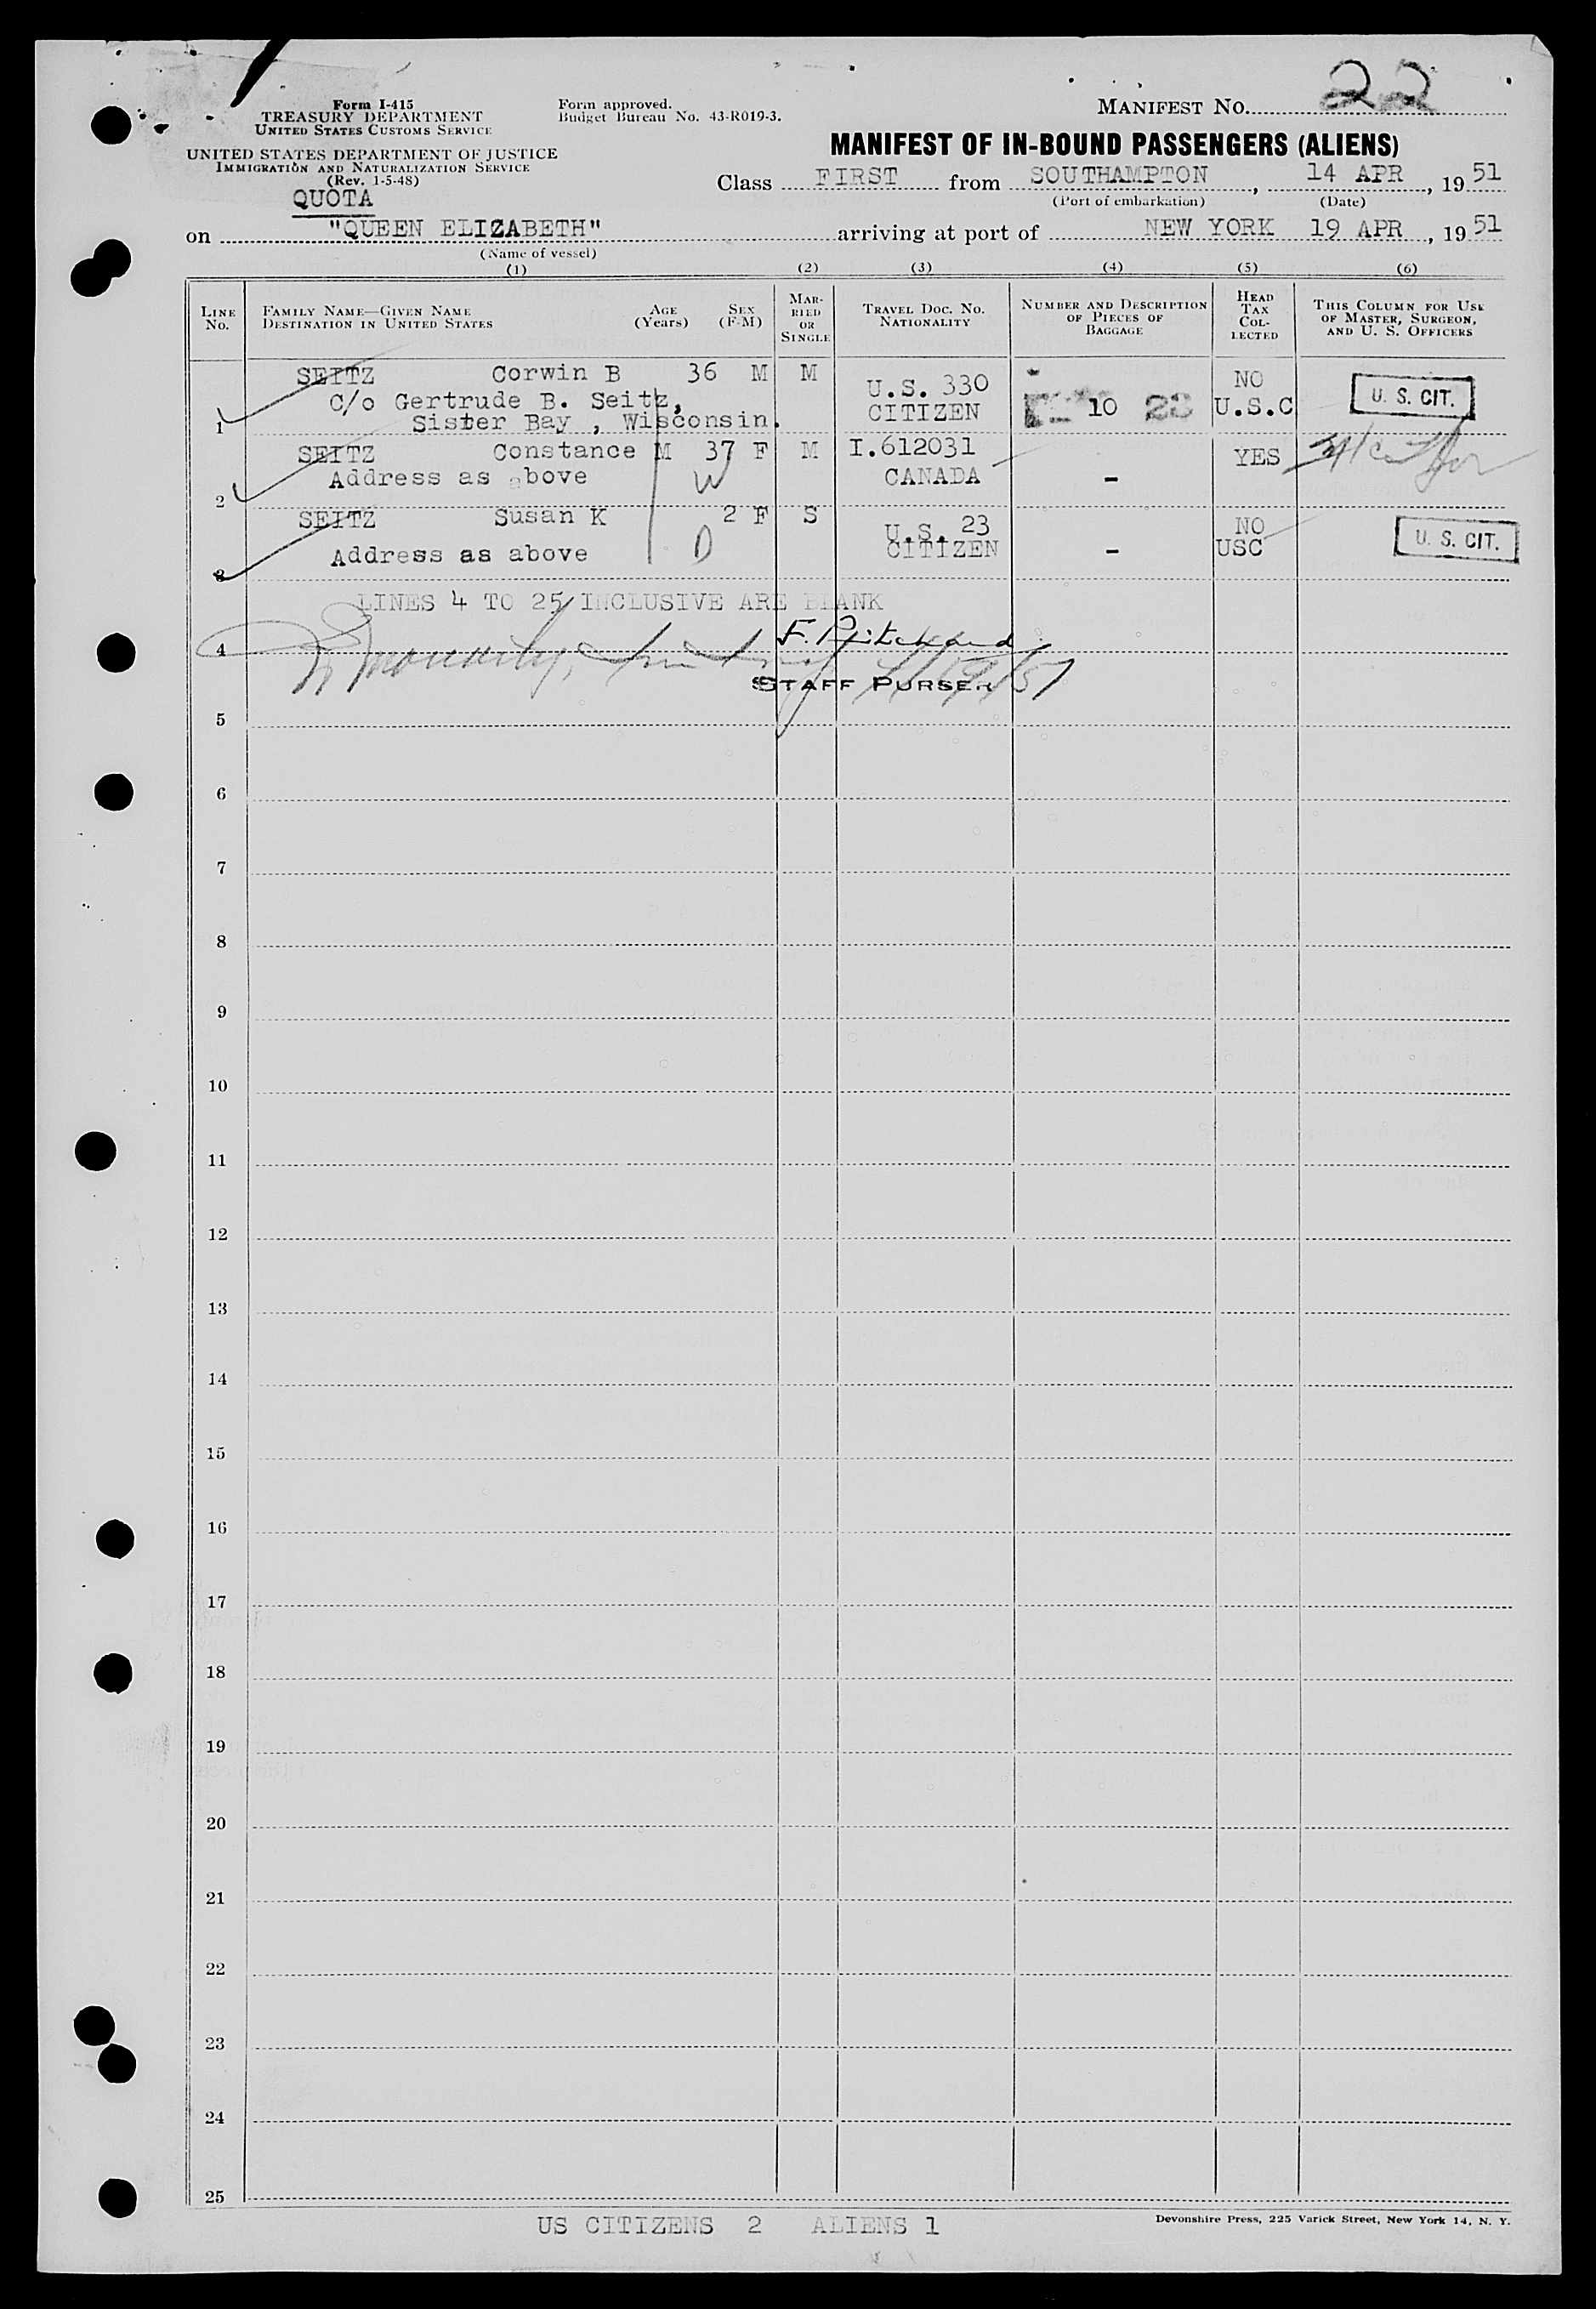 Form I-415
TREASURY DEPARTMENT
UNITED STATES CUSTOMS SERVICE
UNITED STATES DEPARTMENT OF JUSTICE
IMMIGRATION AND NATURALIZATION SERVICE
(Rev. 1-5-48)
QUOTA
Form approved.
Budget Bureau No. 43-R019-3.
MANIFEST NO. 22
MANIFEST OF IN-BOUND PASSENGERS (ALIENS)
Class FIRST from SOUTHAMPTON, 14 APR, 19 51
(Port of embarkation) (Date)
on "QUEEN ELIZABETH" arriving at port of NEW YORK 19 APR, 19 51
(Name of vessel)
(1) (2) (3) (4) (5) (6)
LINE NO.
FAMILY NAME—GIVEN NAME AGE SEX
DESTINATION IN UNITED STATES (Years) (F-M)
MARRIED OR SINGLE
TRAVEL DOC. NO. NATIONALITY
NUMBER AND DESCRIPTION OF PIECES OF BAGGAGE
HEAD TAX COLLECTED
THIS COLUMN FOR USE OF MASTER, SURGEON, AND U. S. OFFICERS
SEITZ Corwin B 36 M M U.S. 330 NO
C/o Gertrude B. Seitz, CITIZEN 10 23 U.S.C U. S. CIT.
1 Sister Bay , Wisconsin.
SEITZ Constance M 37 F M I.612031 YES
2 Address as above W CANADA -
SEITZ Susan K 2 F S U.S. 23 NO
3 Address as above D CITIZEN - USC U. S. CIT.
LINES 4 TO 25 INCLUSIVE ARE BLANK
4 F. Pritchard
STAFF PURSER
5
6
7
8
9
10
11
12
13
14
15
16
17
18
19
20
21
22
23
24
25
US CITIZENS 2 ALIENS 1
Devonshire Press, 225 Varick Street, New York 14, N. Y.